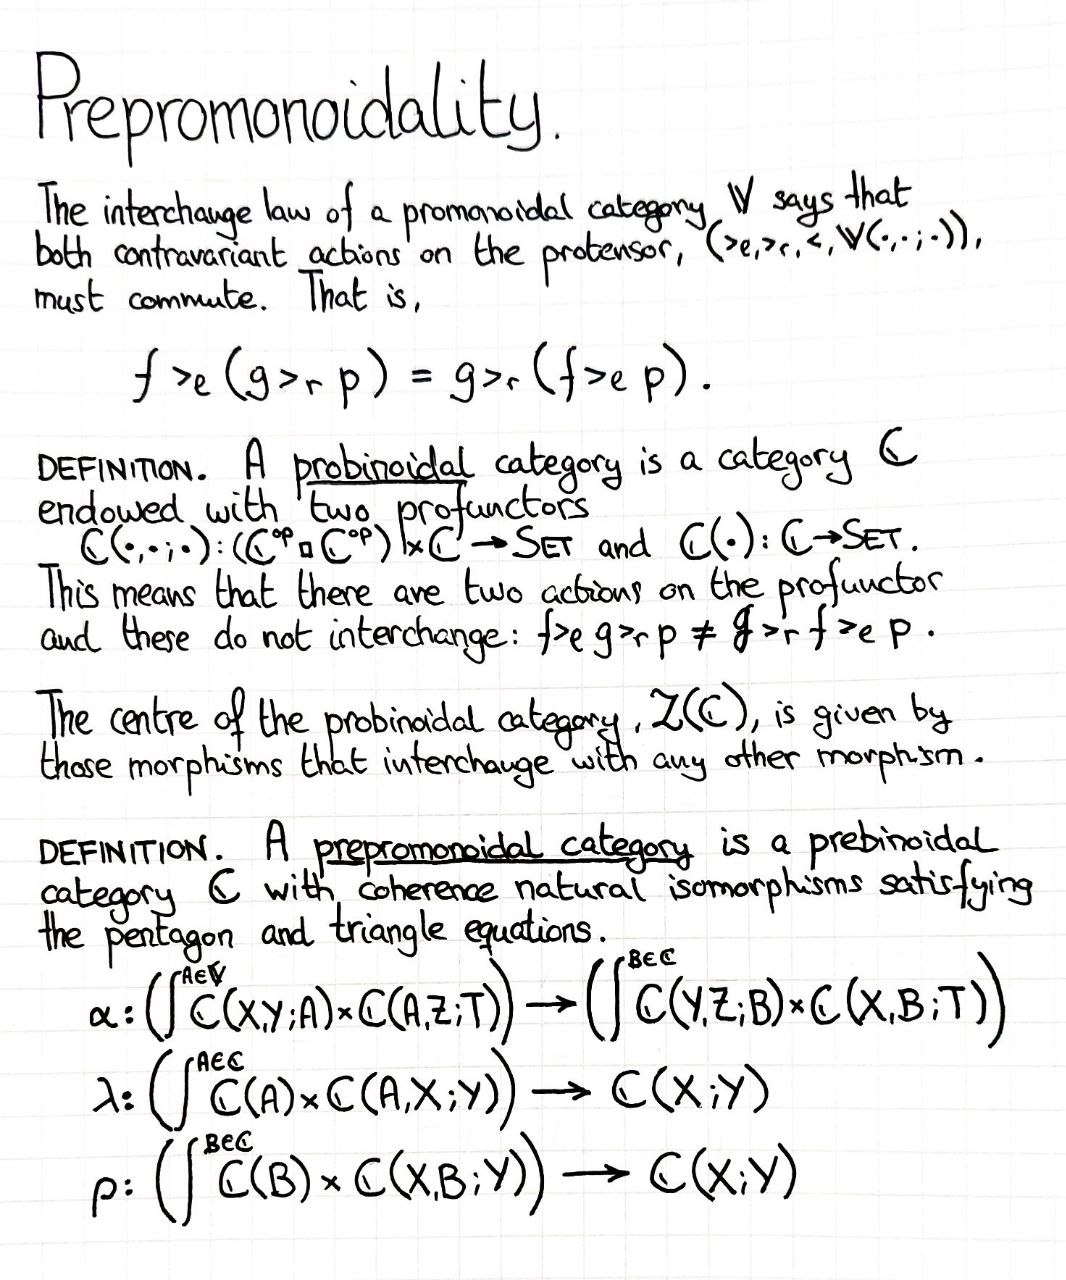 Prepromonoidality.
The interchange law of a promonoidal category 𝕍 says that
both contravariant actions on the protensor, (>e, >r, <, 𝕍(·,·;·)),
must commute. That is,
f >e (g >r p) = g >r (f >e p).
DEFINITION. A probinoidal category is a category ℂ
endowed with two profunctors
ℂ(·,·;·): (ℂᵒᵖ □ ℂᵒᵖ) × ℂ → SET and ℂ(·): ℂ → SET.
This means that there are two actions on the profunctor
and these do not interchange: f >e g >r p ≠ g >r f >e p.
The centre of the probinoidal category, Z(ℂ), is given by
those morphisms that interchange with any other morphism.
DEFINITION. A prepromonoidal category is a prebinoidal
category ℂ with coherence natural isomorphisms satisfying
the pentagon and triangle equations.
α: (∫^{A∈𝕍} ℂ(X,Y;A) × ℂ(A,Z;T)) → (∫^{B∈ℂ} ℂ(Y,Z;B) × ℂ(X,B;T))
λ: (∫^{A∈ℂ} ℂ(A) × ℂ(A,X;Y)) → ℂ(X;Y)
ρ: (∫^{B∈ℂ} ℂ(B) × ℂ(X,B;Y)) → ℂ(X;Y)